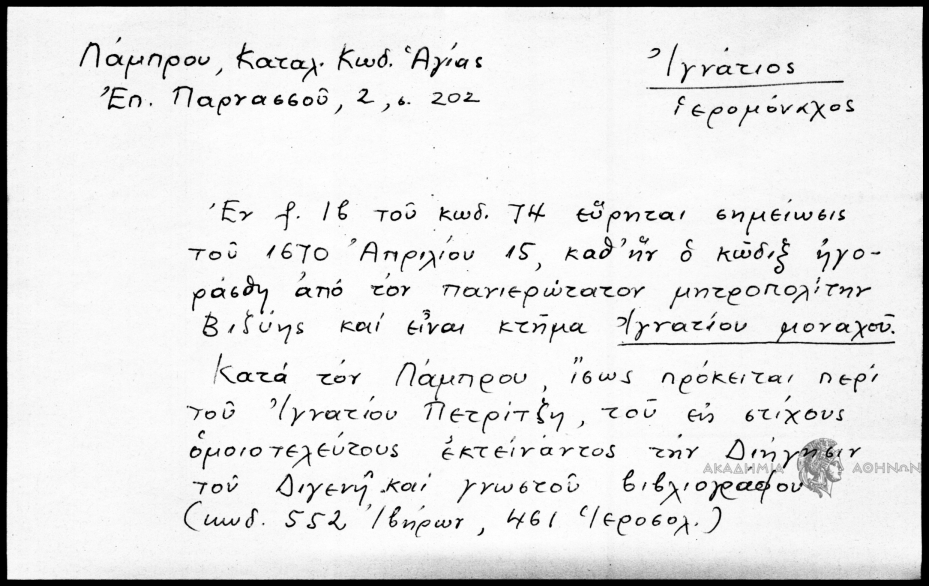 Λάμπρου, Καταλ. Κωδ. Ἁγίας
Ἐπ. Παρνασσοῦ, 2, σ. 202
Ἰγνάτιος
ἱερομόναχος
Ἐν f. 1β τοῦ κωδ. 74 εὕρηται σημείωσις
τοῦ 1670 Ἀπριλίου 15, καθ' ἥν ὁ κῶδιξ ἠγο-
ράσθη ἀπό τόν πανιερώτατον μητροπολίτην
Βιζύης καί εἶναι κτῆμα Ἰγνατίου μοναχοῦ.
Κατά τόν Λάμπρου, ἴσως πρόκειται περί
τοῦ Ἰγνατίου Πετρίτζη, τοῦ εἰς στίχους
ὁμοιοτελεύτους ἐκτείναντος τήν Διήγησιν
τοῦ Διγενῆ καί γνωστοῦ βιβλιογράφου
(κωδ. 552 Ἰβήρων, 461 Ἱεροσολ.)
ΑΚΑΔΗΜΙΑ ΑΘΗΝΩΝ